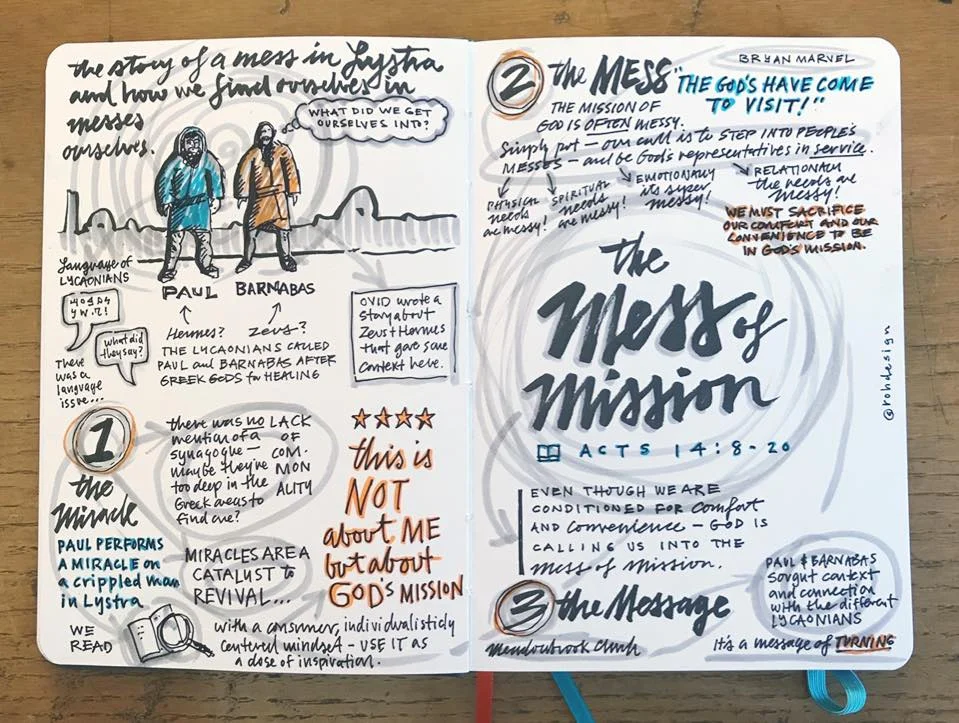 the story of a mess in Lystra
and how we find ourselves in
messes
ourselves.
WHAT DID WE GET
OURSELVES INTO?
PAUL
BARNABAS
Hermes?
Zeus?
THE LYCAONIANS CALLED
PAUL and BARNABAS AFTER
GREEK GODS for HEALING
Language of
LYCAONIANS
what did
they say?
There
was a
language
issue...
OVID wrote a
story about
Zeus + Hermes
that gave some
context here.
1
the
Miracle
PAUL PERFORMS
A MIRACLE on
a crippled man
in Lystra
there was no
mention of a
synagogue—
maybe they're
too deep in the
Greek areas to
find one?
LACK
OF
COM-
MON
ALITY
MIRACLES ARE A
CATALYST to
REVIVAL...
this is
NOT
about ME
but about
GOD'S MISSION
WE
READ
with a consumer, individualisticly
centered mindset — USE IT AS
a dose of inspiration.
2
the MESS
BRYAN MARVEL
"THE GOD'S HAVE COME
TO VISIT!"
THE MISSION OF
GOD IS OFTEN MESSY.
Simply put — our call is to STEP INTO PEOPLE'S
MESSES — and be God's representatives in service.
PHYSICAL
needs
are messy!
SPIRITUAL
needs
are messy!
EMOTIONALLY
its super
messy!
RELATIONALLY
the needs are
messy!
WE MUST SACRIFICE
OUR COMFORT AND OUR
CONVENIENCE TO BE
IN GOD'S MISSION.
the
Mess of
Mission
ACTS 14:8-20
@rohdesign
EVEN THOUGH WE ARE
CONDITIONED FOR comfort
AND convenience — GOD IS
CALLING US INTO THE
Mess of Mission.
3
the Message
Meadowbrook Church
PAUL & BARNABAS
sought context
and connection
with the different
LYCAONIANS
It's a message of TURNING